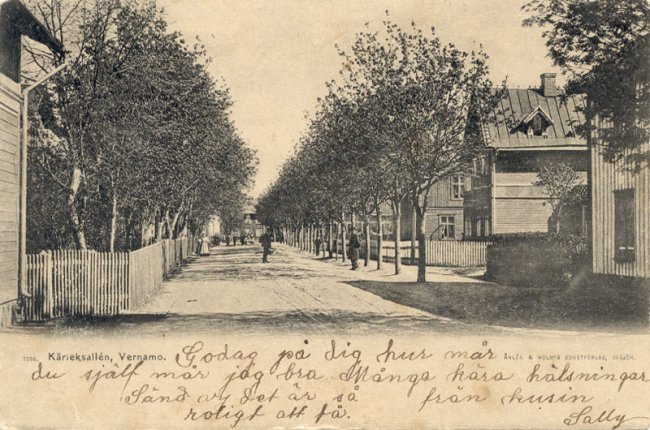 1293. Kärleksallén, Vernamo.
ÅHLÉN & HOLM'S KONSTFÖRLAG, INSJÖN.
Godag på dig hur mår
du själf mår jag bra. Många kära hälsningar
Sänd vy det är så från kusin
roligt att få. Sally